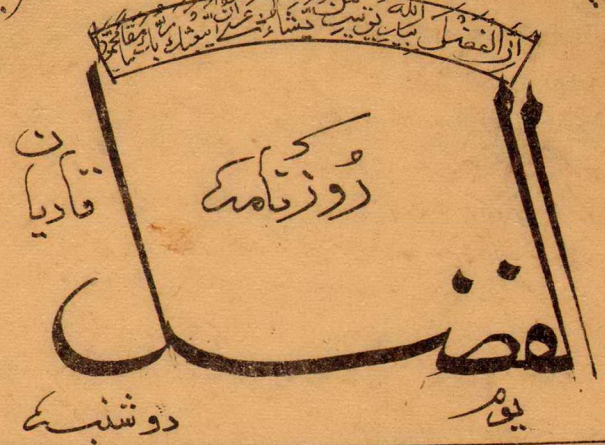 ان الفضل بيد الله يؤتيه من يشاء عسى ان يبعثك ربك مقاما محمودا
روزنامہ
قادیان
الفضل
یوم
دو شنبہ